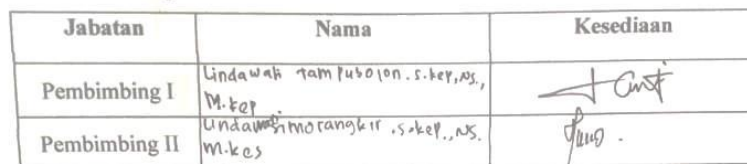 Jabatan Nama Kesediaan
Pembimbing I Lindawati tampubolon.s.kep,Ns.,
M.kep.
Pembimbing II simorangkir.s.kep.,Ns.
M.kes